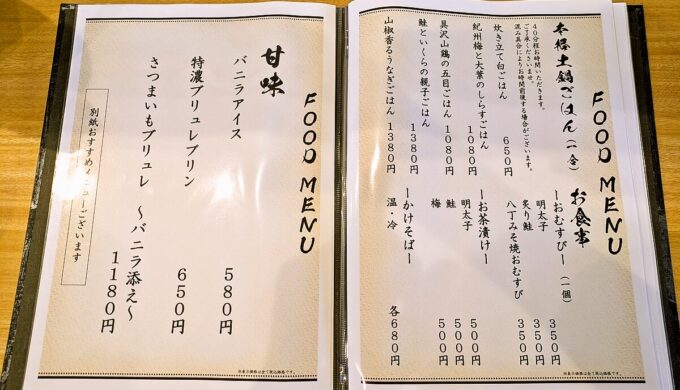 FOOD MENU
本格土鍋ごはん（一合）
４０分程お時間いただきます。
ご了承くださいませ。
混み具合によりお時間前後する場合がございます。
炊き立て白ごはん ６５０円
紀州梅と大葉のしらすごはん １０８０円
具沢山鶏の五目ごはん １０８０円
鮭といくらの親子ごはん １３８０円
山椒香るうなぎごはん １３８０円
お食事
ーおむすびー（一個）
明太子 ３５０円
炙り鮭 ３５０円
八丁みそ焼おむすび ３５０円
ーお茶漬けー
明太子 ５００円
鮭 ５００円
梅 ５００円
ーかけそばー
温・冷 各６８０円
FOOD MENU
甘味
バニラアイス ５８０円
特濃ブリュレプリン ６５０円
さつまいもブリュレ 〜バニラ添え〜 １１８０円
別紙おすすめメニューございます